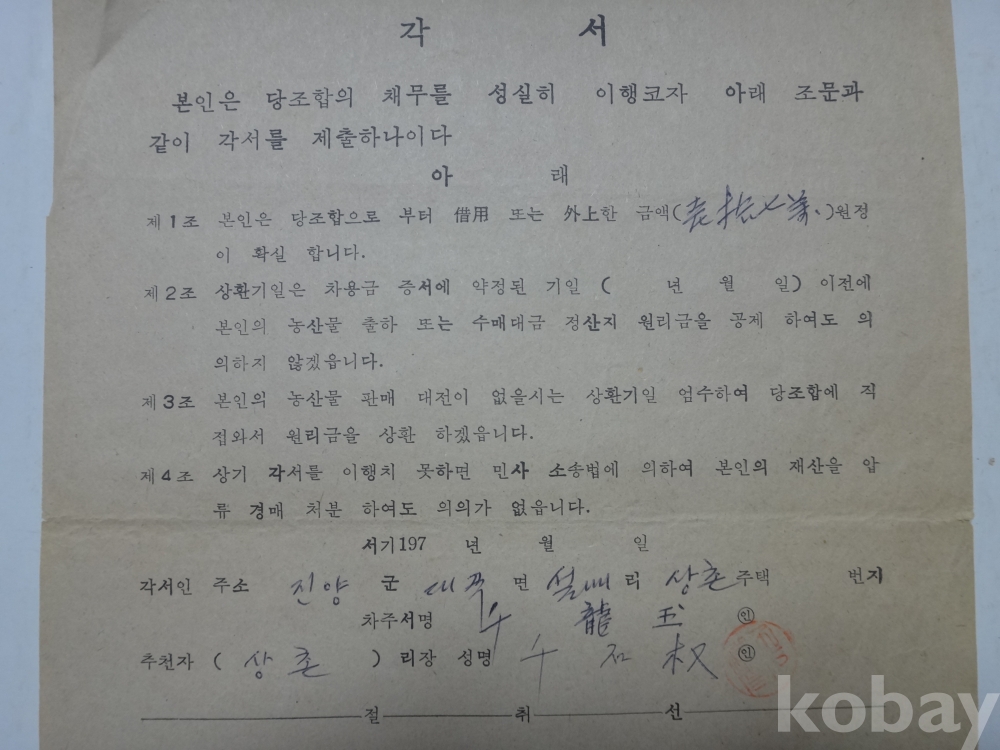 각 서
본인은 당조합의 채무를 성실히 이행코자 아래 조문과
같이 각서를 제출하나이다
아 래
제1조 본인은 당조합으로 부터 借用 또는 外上한 금액(壱拾七萬)원정
이 확실 합니다.
제2조 상환기일은 차용금 증서에 약정된 기일 ( 년 월 일) 이전에
본인의 농산물 출하 또는 수매대금 정산지 원리금을 공제 하여도 의
의하지 않겠읍니다.
제3조 본인의 농산물 판매 대전이 없을시는 상환기일 엄수하여 당조합에 직
접와서 원리금을 상환 하겠읍니다.
제4조 상기 각서를 이행치 못하면 민사 소송법에 의하여 본인의 재산을 압
류 경매 처분 하여도 의의가 없읍니다.
서기197 년 월 일
각서인 주소 진양 군 대곡 면 설매 리 상촌 주택 번지
차주서명 龍 玉 ㊞
추천자 ( 상촌 ) 리장 성명 石 权 ㊞
절 취 선
kobay